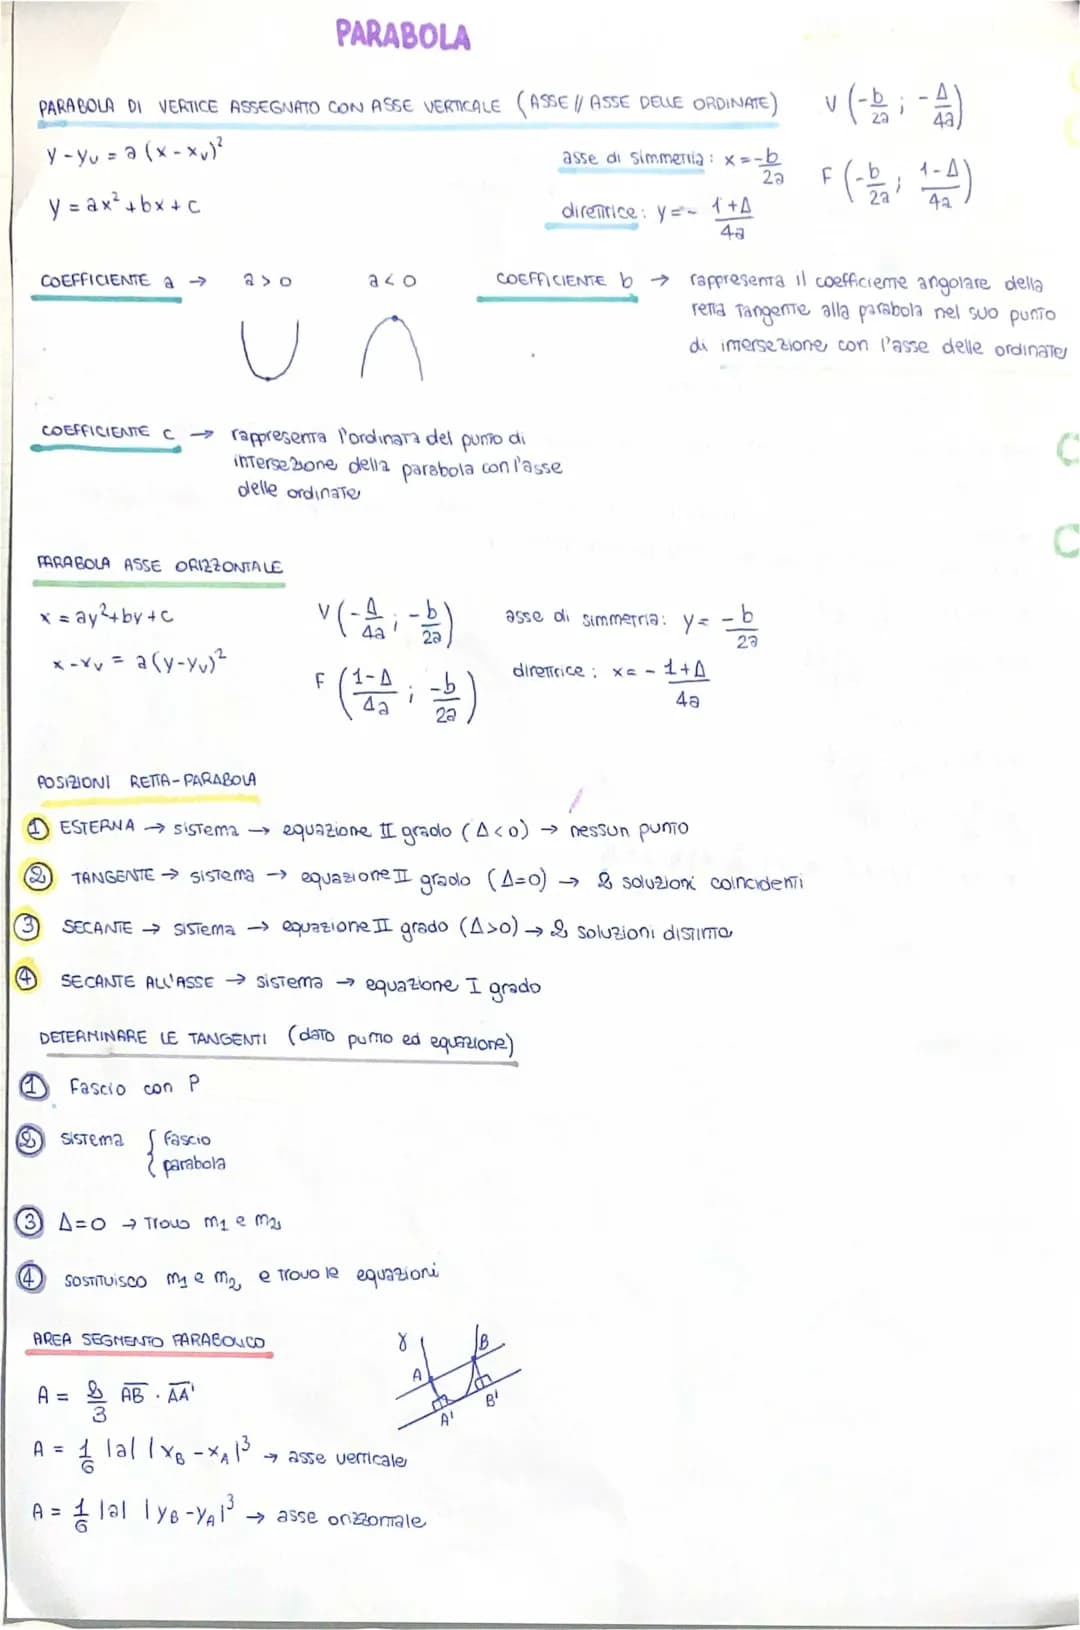 PARABOLA
PARABOLA DI VERTICE ASSEGNATO CON ASSE VERTICALE (ASSE // ASSE DELLE ORDINATE)
V (-b/2a ; -Δ/4a)
y-yv = a (x-xv)²
asse di simmetria: x = -b/2a
F (-b/2a ; 1-Δ/4a)
y = ax² + bx + c
direttrice: y = - 1+Δ/4a
COEFFICIENTE a → a>0 a<0
COEFFICIENTE b → rappresenta il coefficiente angolare della
retta tangente alla parabola nel suo punto
di intersezione con l'asse delle ordinate
COEFFICIENTE c → rappresenta l'ordinata del punto di
intersezione della parabola con l'asse
delle ordinate
C
C
PARABOLA ASSE ORIZZONTALE
x = ay²+by+c
V (-Δ/4a ; -b/2a)
asse di simmetria: y = -b/2a
x-xv = a(y-yv)²
F (1-Δ/4a ; -b/2a)
direttrice: x = - 1+Δ/4a
POSIZIONI RETTA-PARABOLA
① ESTERNA → sistema → equazione II grado (Δ<0) → nessun punto
② TANGENTE → sistema → equazione II grado (Δ=0) → 2 soluzioni coincidenti
③ SECANTE → sistema → equazione II grado (Δ>0) → 2 soluzioni distinte
④ SECANTE ALL'ASSE → sistema → equazione I grado
DETERMINARE LE TANGENTI (dato punto ed equazione)
① Fascio con P
② sistema { fascio
parabola
③ Δ=0 → Trovo m1 e m2
④ SOSTITUISCO m1 e m2 e trovo le equazioni
AREA SEGMENTO PARABOLICO
γ
A
B
A'
B'
A = 2/3 AB · AA'
A = 1/6 |a| |xB-xA|³ → asse verticale
A = 1/6 |a| |yB-yA|³ → asse orizzontale